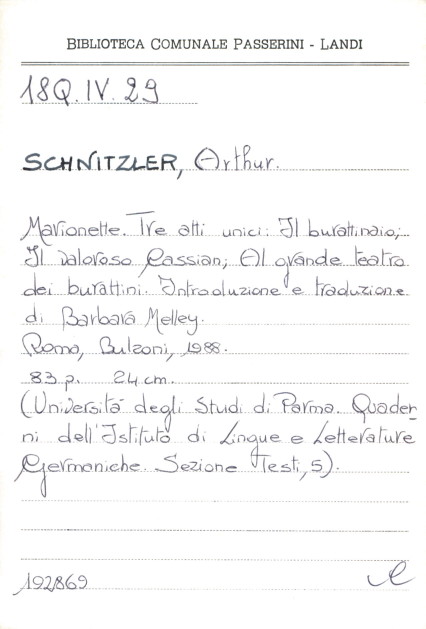 BIBLIOTECA COMUNALE PASSERINI - LANDI
18Q.IV.29
SCHNITZLER, Arthur.
Marionette. Tre atti unici: Il burattinaio;
Il valoroso Cassian; Al grande teatro
dei burattini. Introduzione e traduzione
di Barbara Melley.
Roma, Bulzoni, 1988.
83 p. 24 cm.
(Università degli Studi di Parma. Quader-
ni dell'Istituto di Lingue e Letterature
Germaniche. Sezione Testi, 5).
192869